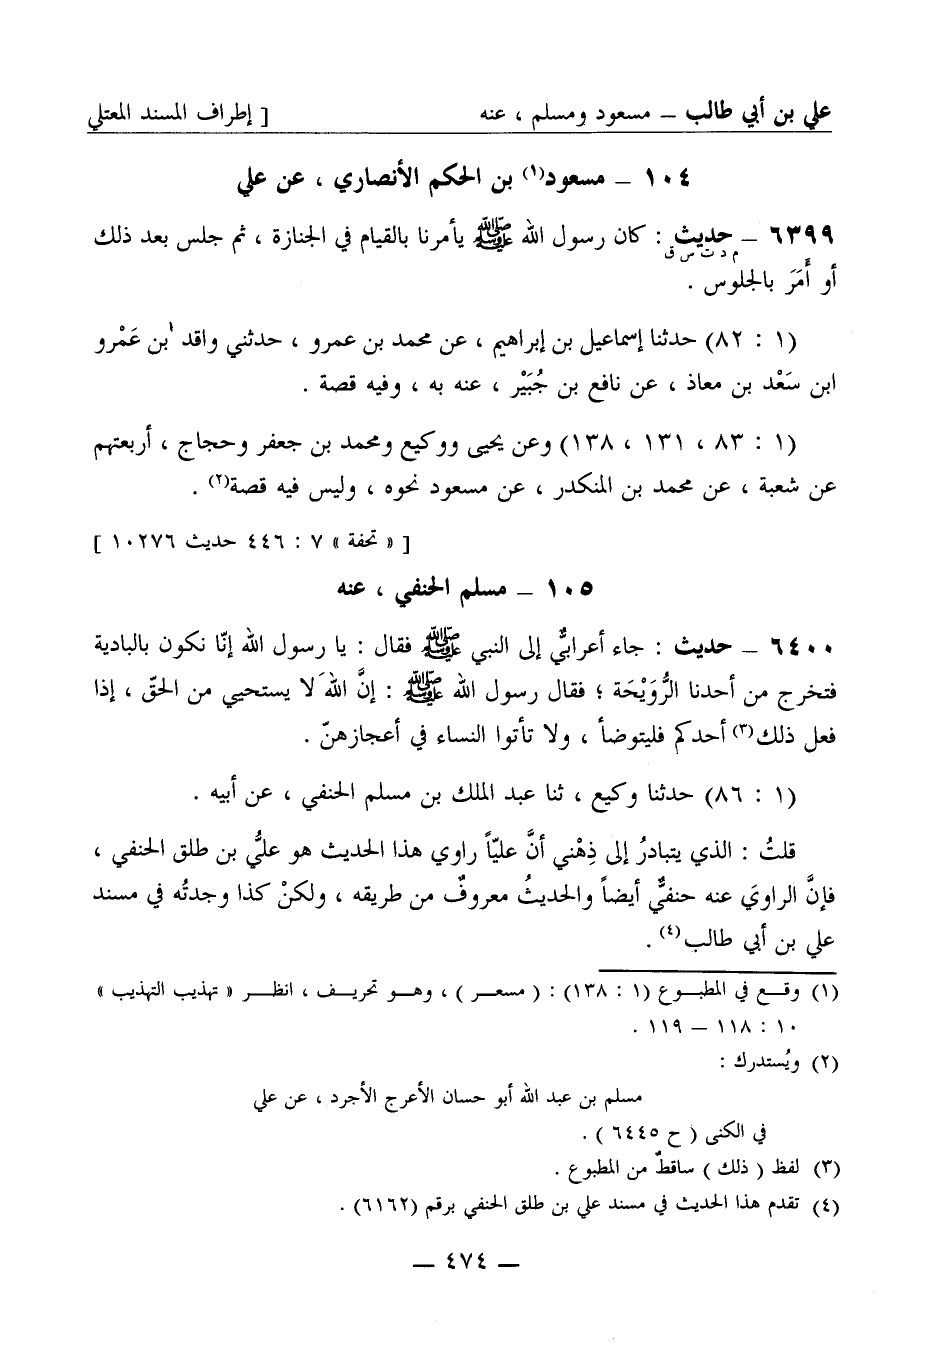 علي بن أبي طالب – مسعود ومسلم ، عنه [ إطراف المسند المعتلي
١٠٤ – مسعود(١) بن الحكم الأنصاري ، عن علي
٦٣٩٩ – حديث : كان رسول الله ﷺ يأمرنا بالقيام في الجنازة ، ثم جلس بعد ذلك
م د ت س ق
أو أَمَرَ بالجلوس .
(١ : ٨٢) حدثنا إسماعيل بن إبراهيم ، عن محمد بن عمرو ، حدثني واقد بن عَمْرو
ابن سَعْد بن معاذ ، عن نافع بن جُبَيْر ، عنه به ، وفيه قصة .
(١ : ٨٣ ، ١٣١ ، ١٣٨) وعن يحيى ووكيع ومحمد بن جعفر وحجاج ، أربعتهم
عن شعبة ، عن محمد بن المنكدر ، عن مسعود نحوه ، وليس فيه قصة(٢) .
[ « تحفة » ٧ : ٤٤٦ حديث ١٠٢٧٦ ]
١٠٥ – مسلم الحنفي ، عنه
٦٤٠٠ – حديث : جاء أعرابيٌّ إلى النبي ﷺ فقال : يا رسول الله إنّا نكون بالبادية
فتخرج من أحدنا الرُّوَيْحَة ؛ فقال رسول الله ﷺ : إنَّ اللهَ لا يستحيي من الحقّ ، إذا
فعل ذلك(٣) أحدكم فليتوضأ ، ولا تأتوا النساء في أعجازهنّ .
(١ : ٨٦) حدثنا وكيع ، ثنا عبد الملك بن مسلم الحنفي ، عن أبيه .
قلتُ : الذي يتبادرُ إلى ذِهْني أنَّ عليّاً راوي هذا الحديث هو عليُّ بن طلق الحنفي ،
فإنَّ الراويَ عنه حنفيٌّ أيضاً والحديثُ معروفٌ من طريقه ، ولكنْ كذا وجدتُه في مسند
علي بن أبي طالب(٤) .
(١) وقع في المطبوع (١ : ١٣٨) : ( مسعر ) ، وهو تحريف ، انظر « تهذيب التهذيب »
١٠ : ١١٨ – ١١٩ .
(٢) ويُستدرك :
مسلم بن عبد الله أبو حسان الأعرج الأجرد ، عن علي
في الكنى ( ح ٦٤٤٥ ) .
(٣) لفظ ( ذلك ) ساقطٌ من المطبوع .
(٤) تقدم هذا الحديث في مسند علي بن طلق الحنفي برقم (٦١٦٢) .
– ٤٧٤ –